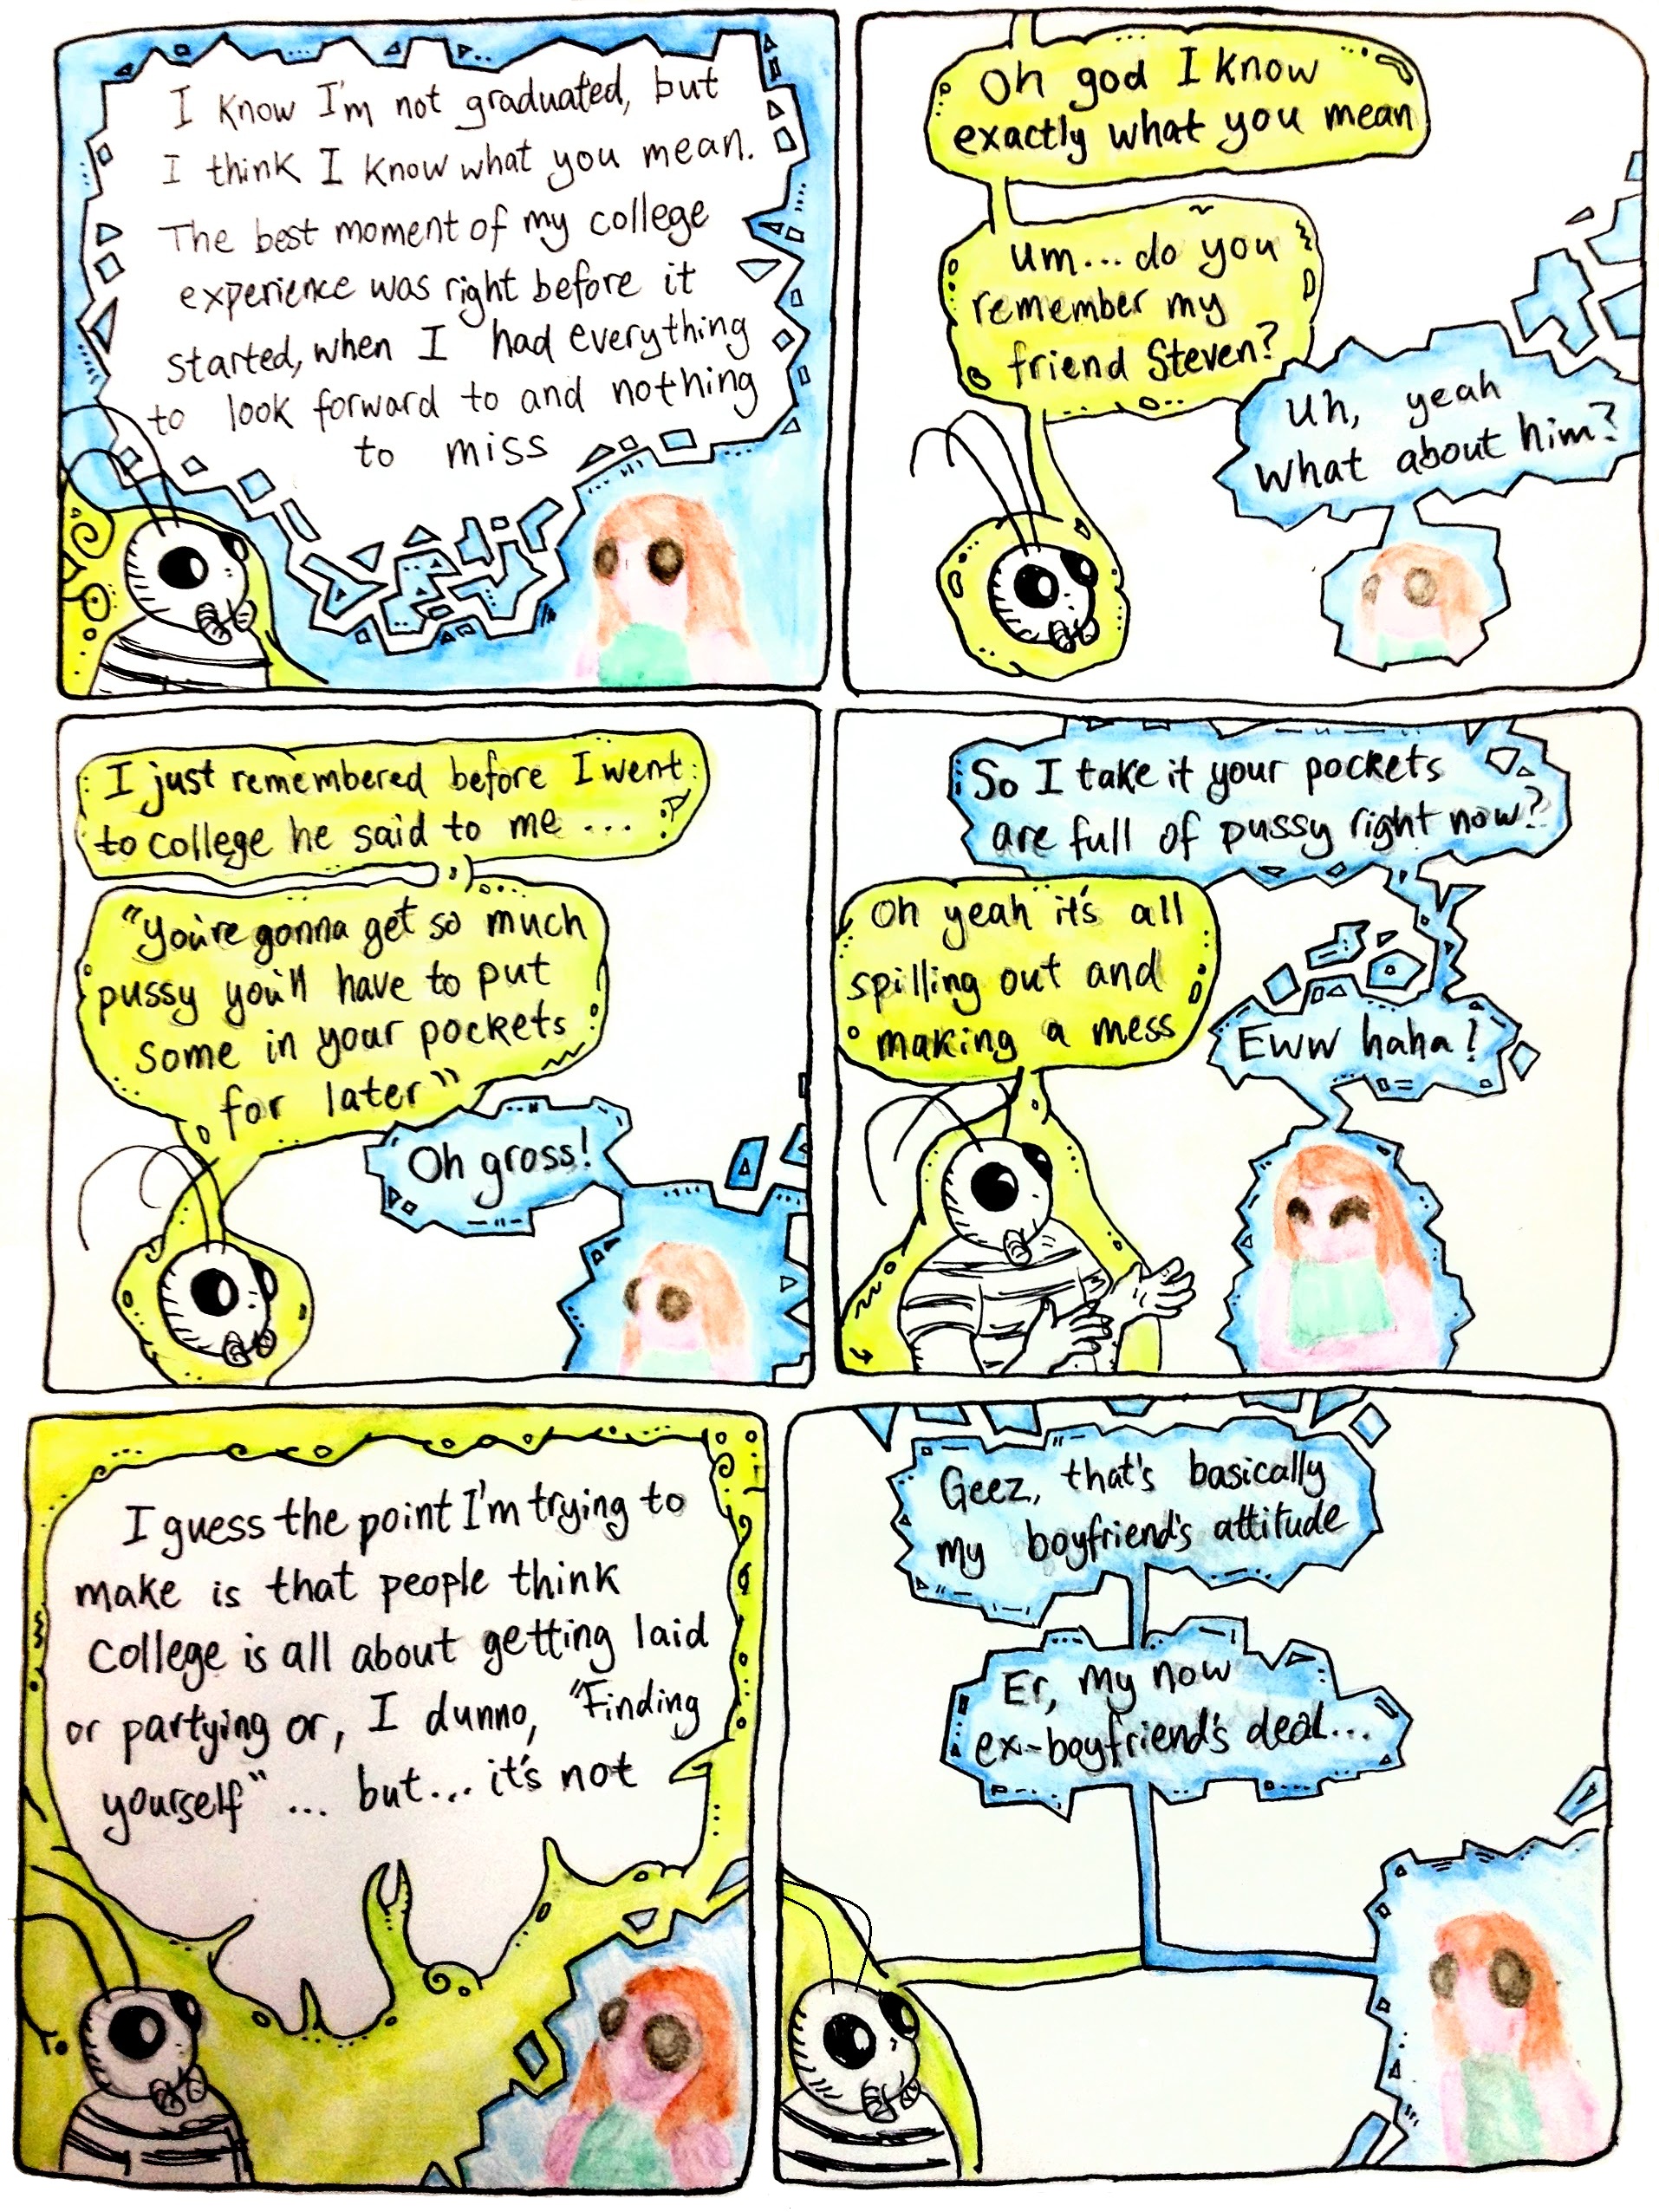 I know I'm not graduated, but
I think I know what you mean.
The best moment of my college
experience was right before it
started, when I had everything
to look forward to and nothing
to miss
Oh god I know
exactly what you mean
um... do you
remember my
friend Steven?
Uh, yeah
what about him?
I just remembered before I went
to college he said to me ...
"you're gonna get so much
pussy you'll have to put
some in your pockets
for later"
Oh gross!
So I take it your pockets
are full of pussy right now?
Oh yeah it's all
spilling out and
making a mess
Eww haha!
I guess the point I'm trying to
make is that people think
college is all about getting laid
or partying or, I dunno, "Finding
yourself" ... but... it's not
Geez, that's basically
my boyfriend's attitude
Er, my now
ex-boyfriend's deal...